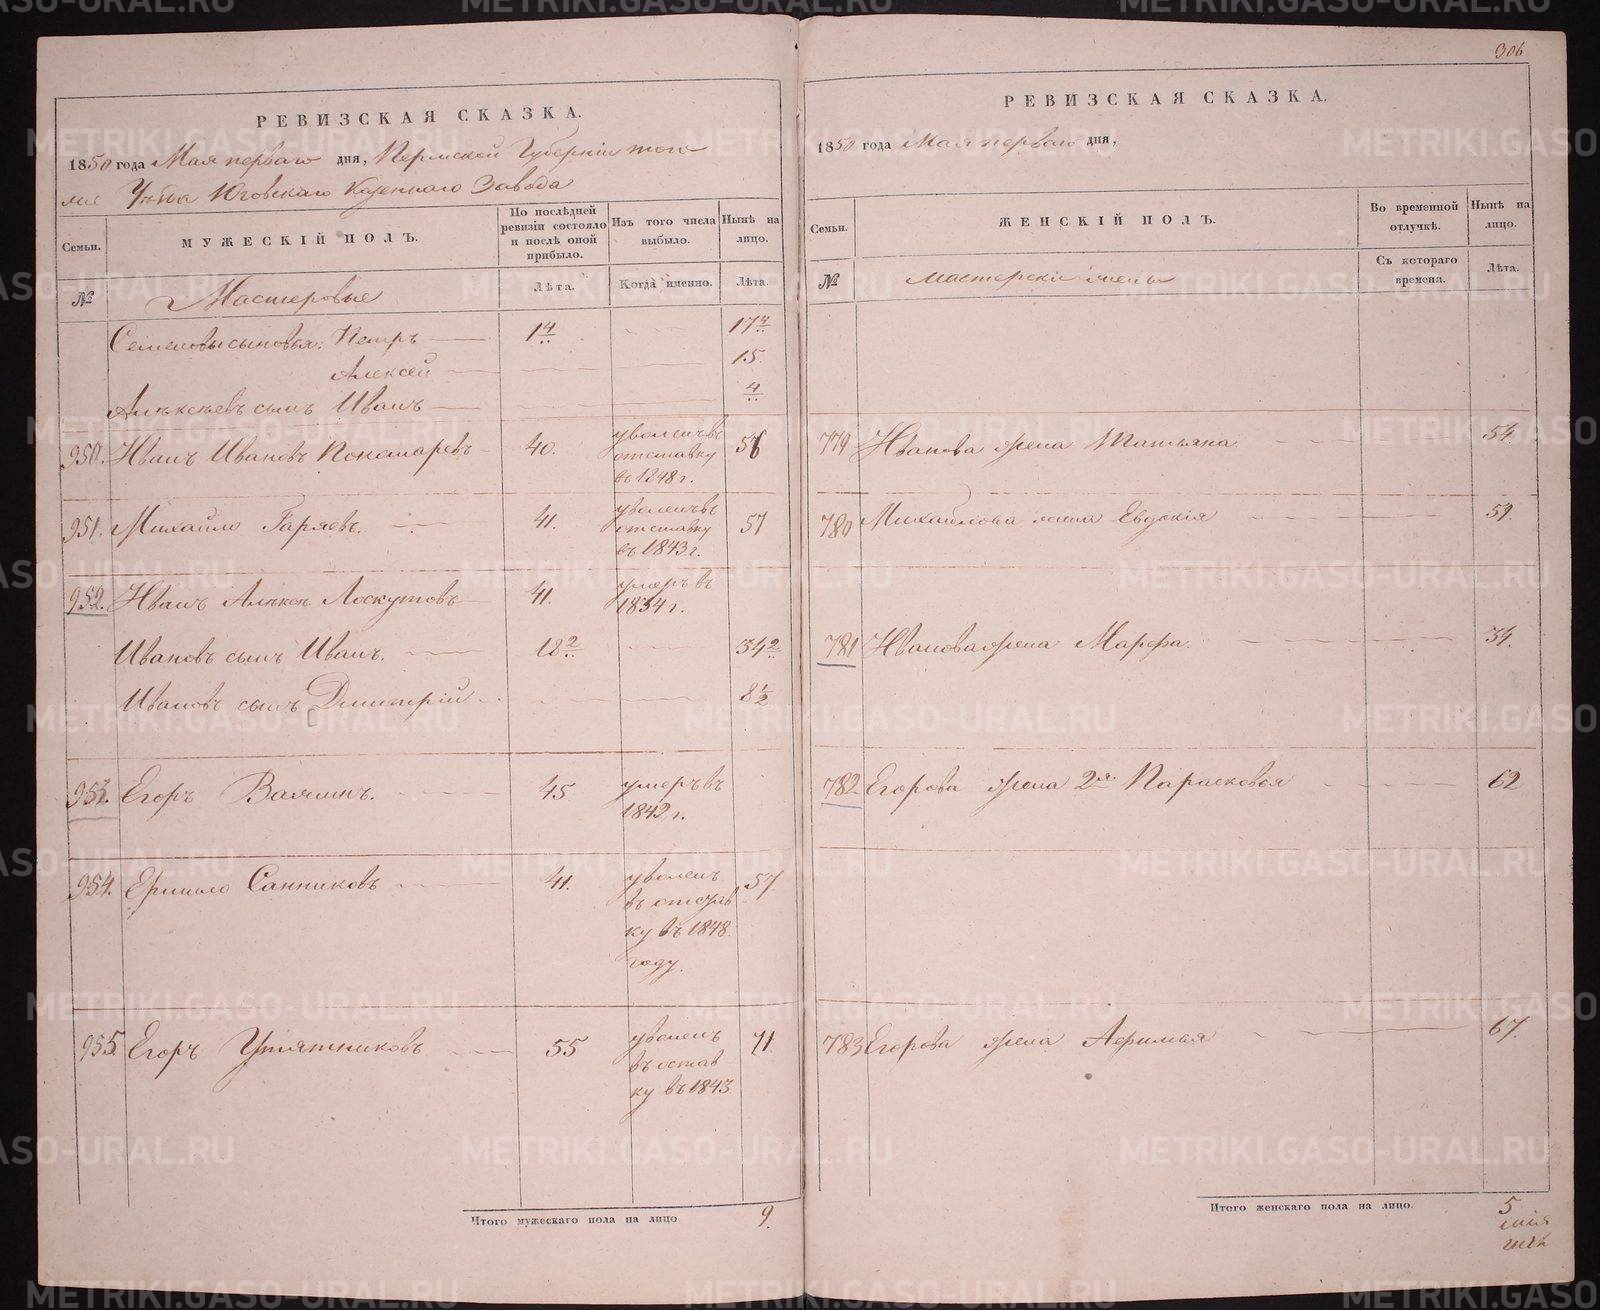 306
РЕВИЗСКАЯ СКАЗКА.
1850 года Мая перваго дня, Пермской Губернiи тогоже
Уѣзда Юговскаго Казеннаго Завода
Семьи.
МУЖЕСКІЙ ПОЛЪ.
По послѣдней ревизіи состояло и послѣ оной прибыло.
Изъ того числа выбыло.
Нынѣ на лицо.
№
Мастеровые
Лѣта.
Когда именно.
Лѣта.
Семеновы сыновья: Петръ 14 17 4
Алексѣй 15.
Алексѣевъ сынъ Иванъ 4
950. Иванъ Ивановъ Пономаревъ 40. уволенъ въ отставку въ 1848 г. 56
951. Михайло Гаряевъ. 41. уволенъ въ отставку въ 1843 г. 57
952. Иванъ Алексѣ Лоскутовъ 41. умеръ въ 1834 г.
Ивановъ сынъ Иванъ. 18 2 34 2
Ивановъ сынъ Дмитрій 8 1/2
953. Егоръ 45 умеръ въ 1842 г.
954. Ермило Санниковъ 41. уволенъ въ отставку въ 1848 году. 57
955. Егоръ Утятниковъ 55 уволенъ въ отставку въ 1843. 71.
Итого мужескаго пола на лицо 9.
РЕВИЗСКАЯ СКАЗКА.
1850 года Мая перваго дня,
Семьи.
ЖЕНСКІЙ ПОЛЪ.
Во временной отлучкѣ.
Нынѣ на лицо.
№
мастерскіе жены
Съ котораго времена.
Лѣта.
779 Иванова жена Татьяна 54.
780 Михайлова жена Евдокія 59.
781 Иванова жена Марфа. 34.
782 Егорова жена 2я Парасковья 62
783 Егорова жена Афимья 67.
Итого женскаго пола на лицо. 5
METRIKI.GASO-URAL.RU